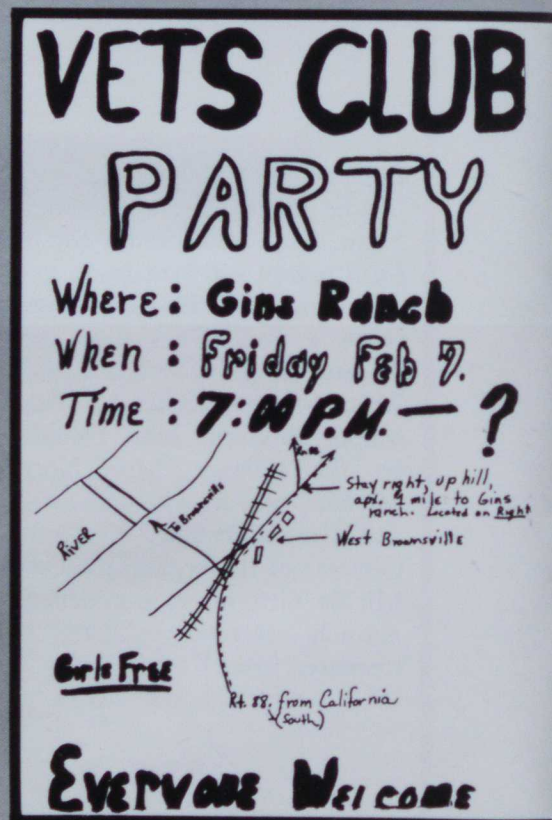 VETS CLUB
PARTY
Where: Gins Ranch
When: Friday Feb 7.
Time: 7:00 P.M. — ?
Rt. 88
Stay right, up hill,
apx. 1 mile to Gins
ranch. Located on Right
To Brownsville
River
West Brownsville
Girls Free
Rt. 88. from California
(South)
Everyone Welcome